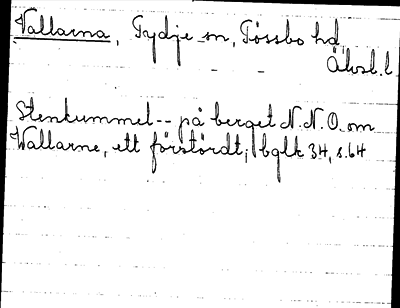 Vallarna, Tydje sn, Tössbo hd.
Älvsb. l.
Stenkummel -- på berget N.N.O. om
Wallarne, ett förstördt; bglk 34, s. 64